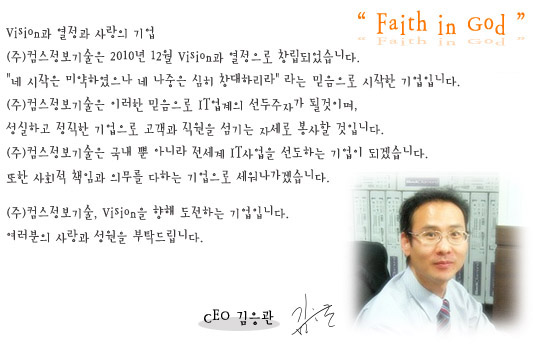 “ Faith in God ”
Vision과 열정과 사랑의 기업
(주)컴스정보기술은 2010년 12월 Vision과 열정으로 창립되었습니다.
"네 시작은 미약하였으나 네 나중은 심히 창대하리라" 라는 믿음으로 시작한 기업입니다.
(주)컴스정보기술은 이러한 믿음으로 IT업계의 선두주자가 될것이며,
성실하고 정직한 기업으로 고객과 직원을 섬기는 자세로 봉사할 것입니다.
(주)컴스정보기술은 국내 뿐 아니라 전세계 IT사업을 선도하는 기업이 되겠습니다.
또한 사회적 책임과 의무를 다하는 기업으로 세워나가겠습니다.
(주)컴스정보기술, Vision을 향해 도전하는 기업입니다.
여러분의 사랑과 성원을 부탁드립니다.
CEO 김응관